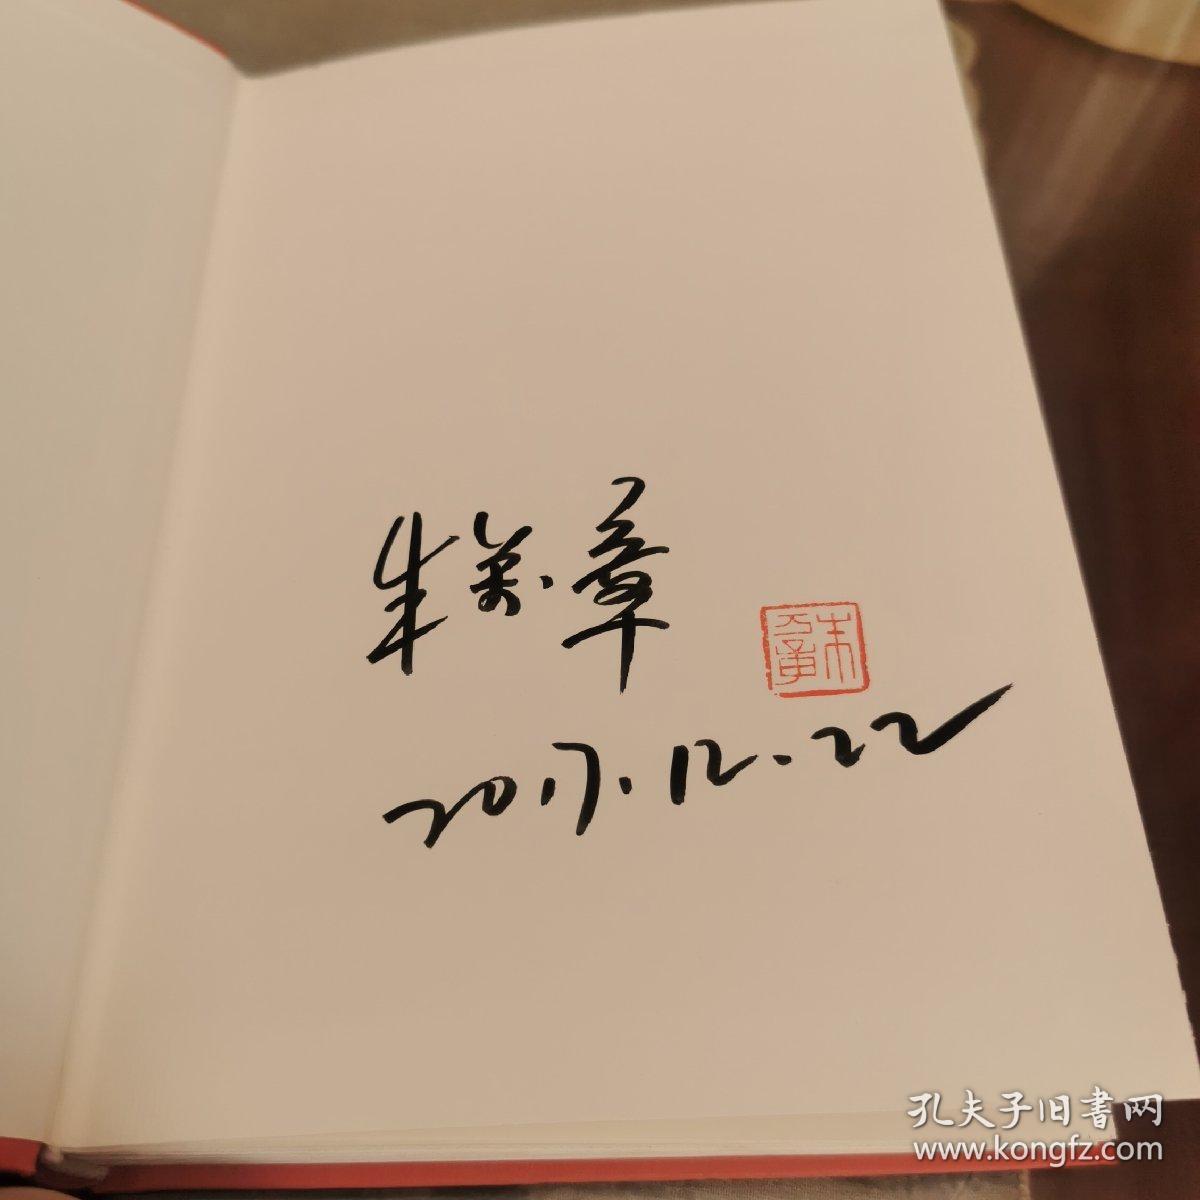 朱万章
2017.12.22
孔夫子旧书网
www.kongfz.com